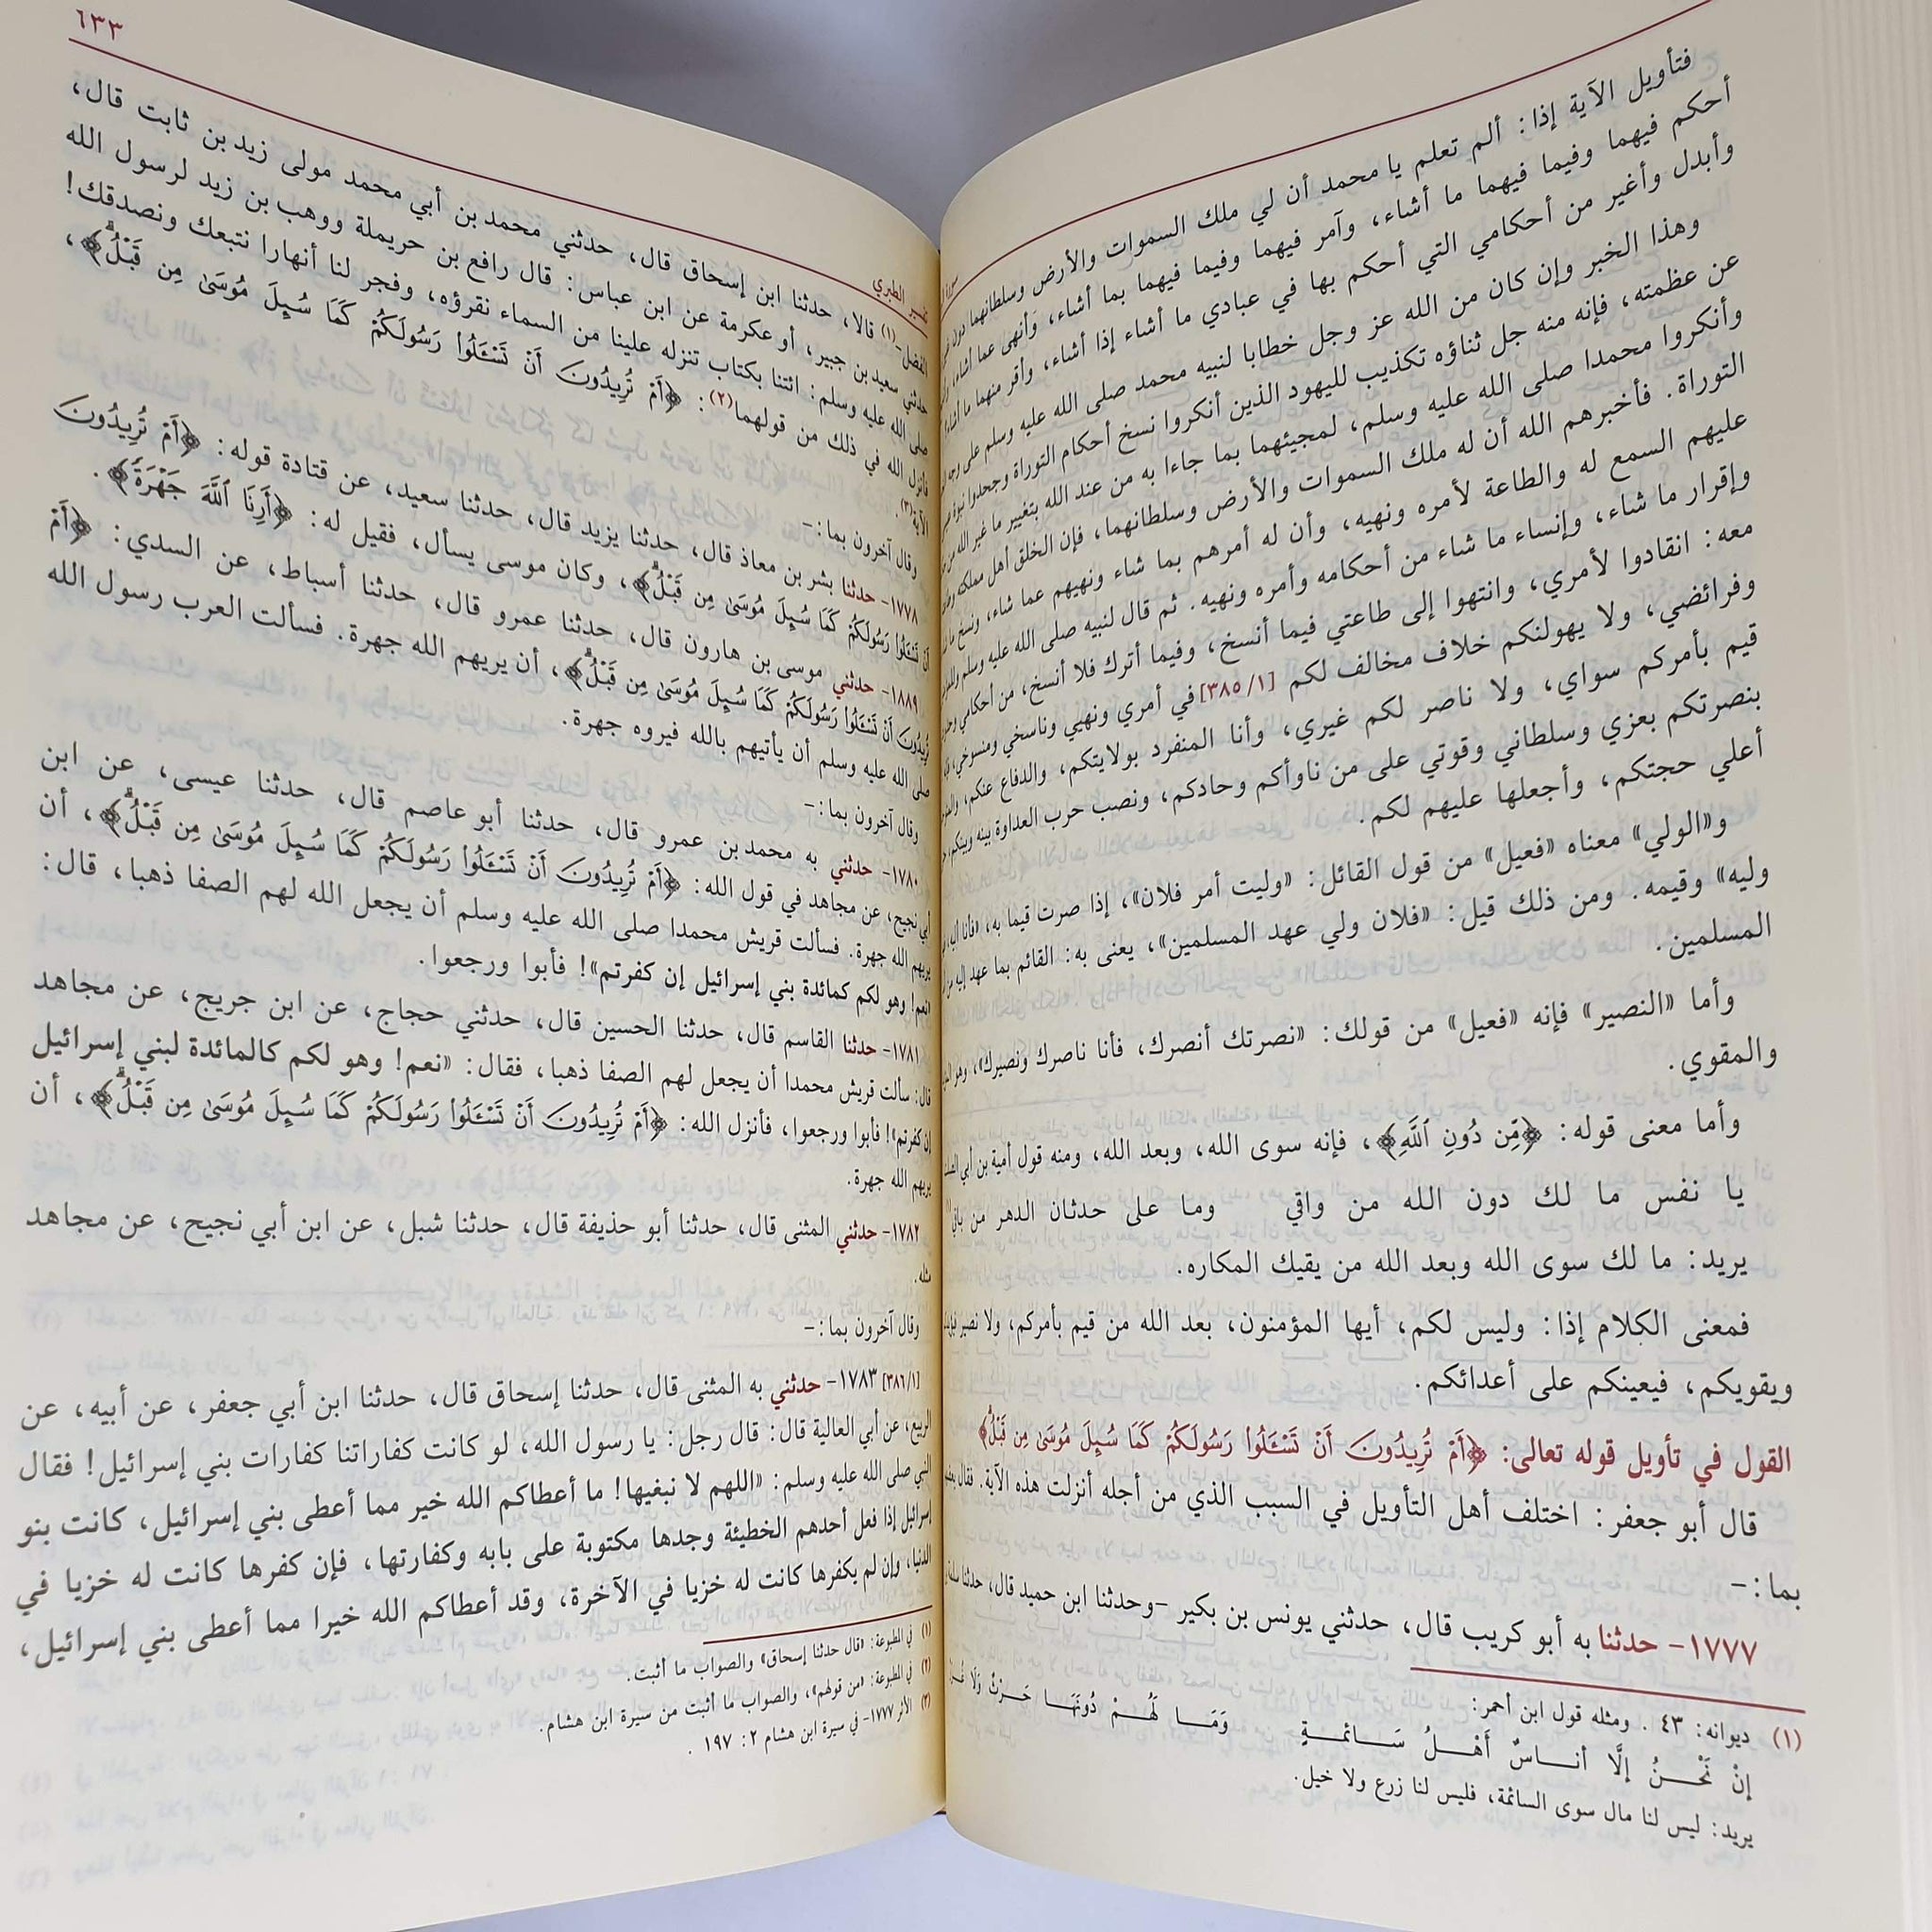 فتأويل الآية إذا: ألم تعلم يا محمد أن لي ملك السموات والأرض وسلطانهما دون
أحكم فيهما وفيما فيهما ما أشاء، وآمر فيهما وفيما فيهما بما أشاء، وأنهى عما أشاء،
وأبدل وأغير من أحكامي التي أحكم بها في عبادي ما أشاء إذا أشاء، وأقر منهما ما أشاء
وهذا الخبر وإن كان من الله عز وجل خطابا لنبيه محمد صلى الله عليه وسلم على وجه
عن عظمته، فإنه منه جل ثناؤه تكذيب لليهود الذين أنكروا نسخ أحكام التوراة وجحدوا نبوة
وأنكروا محمدا صلى الله عليه وسلم، لمجيئهما بما جاءا به من عند الله بتغيير ما غير الله من
التوراة. فأخبرهم الله أن له ملك السموات والأرض وسلطانهما، فإن الخلق أهل مملكته
عليهم السمع له والطاعة لأمره ونهيه، وأن له أمرهم بما شاء ونهيهم عما شاء، ونسخ ما
وإقرار ما شاء، وإنساء ما شاء من أحكامه وأمره ونهيه. ثم قال لنبيه صلى الله عليه وسلم
معه: انقادوا لأمري، وانتهوا إلى طاعتي فيما أنسخ، وفيما أترك فلا أنسخ، من أحكامي
وفرائضي، ولا يهولنكم خلاف مخالف لكم [١/ ٣٨٥] في أمري ونهيي وناسخي ومنسوخي،
قيم بأمركم سواي، ولا ناصر لكم غيري، وأنا المنفرد بولايتكم، والدفاع عنكم،
بنصرتكم بعزي وسلطاني وقوتي على من ناوأكم وحادكم، ونصب حرب العداوة بينه وبينكم،
أعلي حجتكم، وأجعلها عليهم لكم.
و«الولي» معناه «فعيل» من قول القائل: «وليت أمر فلان»، إذا صرت قيما به، «فأنا أليه،
وليه» وقيمه. ومن ذلك قيل: «فلان ولي عهد المسلمين»، يعنى به: القائم بما عهد إليه من
المسلمين.
وأما «النصير» فإنه «فعيل» من قولك: «نصرتك أنصرك، فأنا ناصرك ونصيرك»، وهو
والمقوي.
وأما معنى قوله: ﴿مِّن دُونِ ٱللَّهِ﴾، فإنه سوى الله، وبعد الله، ومنه قول أمية بن أبي
يا نفس ما لك دون الله من واقي وما على حدثان الدهر من باقي
يريد: ما لك سوى الله وبعد الله من يقيك المكاره.
فمعنى الكلام إذا: وليس لكم، أيها المؤمنون، بعد الله من قيم بأمركم، ولا نصير
ويقويكم، فيعينكم على أعدائكم.
القول في تأويل قوله تعالى: ﴿أَمْ تُرِيدُونَ أَن تَسْـَٔلُوا۟ رَسُولَكُمْ كَمَا سُئِلَ مُوسَىٰ مِن قَبْلُ﴾
قال أبو جعفر: اختلف أهل التأويل في السبب الذي من أجله أنزلت هذه الآية. فقال
بما: -
١٧٧٧- حدثنا به أبو كريب قال، حدثني يونس بن بكير -وحدثنا ابن حميد قال، حدثنا
(١) ديوانه: ٤٣ . ومثله قول ابن أحمر:
إنْ نَحْــنُ إلَّا أنــاسٌ أَهْــلُ سَــائمــةٍ وَمَــا لَهُــمْ دُونَهَــا حَــرْثٌ وَلَا
يريد: ليس لنا مال سوى السائمة، فليس لنا زرع ولا خيل.
٦٣٣
تفسير الطبري
الفضل-(١) قالا، حدثنا ابن إسحاق قال، حدثني محمد بن أبي محمد مولى زيد بن ثابت قال،
حدثني سعيد بن جبير، أو عكرمة عن ابن عباس: قال رافع بن حريملة ووهب بن زيد لرسول الله
صلى الله عليه وسلم: ائتنا بكتاب تنزله علينا من السماء نقرؤه، وفجر لنا أنهارا نتبعك ونصدقك!
فأنزل الله في ذلك من قولهما(٢): ﴿أَمْ تُرِيدُونَ أَن تَسْـَٔلُوا۟ رَسُولَكُمْ كَمَا سُئِلَ مُوسَىٰ مِن قَبْلُ﴾،
الآية(٣).
وقال آخرون بما: -
١٧٧٨- حدثنا بشر بن معاذ قال، حدثنا يزيد قال، حدثنا سعيد، عن قتادة قوله: ﴿أَمْ تُرِيدُونَ
أَن تَسْـَٔلُوا۟ رَسُولَكُمْ كَمَا سُئِلَ مُوسَىٰ مِن قَبْلُ﴾، وكان موسى يسأل، فقيل له: ﴿أَرِنَا ٱللَّهَ جَهْرَةً﴾.
١٨٨٩- حدثني موسى بن هارون قال، حدثنا عمرو قال، حدثنا أسباط، عن السدي: ﴿أَمْ
تُرِيدُونَ أَن تَسْـَٔلُوا۟ رَسُولَكُمْ كَمَا سُئِلَ مُوسَىٰ مِن قَبْلُ﴾، أن يريهم الله جهرة. فسألت العرب رسول الله
صلى الله عليه وسلم أن يأتيهم بالله فيروه جهرة.
وقال آخرون بما: -
١٧٨٠- حدثني به محمد بن عمرو قال، حدثنا أبو عاصم قال، حدثنا عيسى، عن ابن
أبي نجيح، عن مجاهد في قول الله: ﴿أَمْ تُرِيدُونَ أَن تَسْـَٔلُوا۟ رَسُولَكُمْ كَمَا سُئِلَ مُوسَىٰ مِن قَبْلُ﴾، أن
يريهم الله جهرة. فسألت قريش محمدا صلى الله عليه وسلم أن يجعل الله لهم الصفا ذهبا، قال:
«نعم! وهو لكم كمائدة بني إسرائيل إن كفرتم»! فأبوا ورجعوا.
١٧٨١- حدثنا القاسم قال، حدثنا الحسين قال، حدثني حجاج، عن ابن جريج، عن مجاهد
قال: سألت قريش محمدا أن يجعل لهم الصفا ذهبا، فقال: «نعم! وهو لكم كالمائدة لبني إسرائيل
إن كفرتم»! فأبوا ورجعوا، فأنزل الله: ﴿أَمْ تُرِيدُونَ أَن تَسْـَٔلُوا۟ رَسُولَكُمْ كَمَا سُئِلَ مُوسَىٰ مِن قَبْلُ﴾، أن
يريهم الله جهرة.
١٧٨٢- حدثني المثنى قال، حدثنا أبو حذيفة قال، حدثنا شبل، عن ابن أبي نجيح، عن مجاهد
مثله.
وقال آخرون بما: -
[١/ ٣٨٦] ١٧٨٣- حدثني به المثنى قال، حدثنا إسحاق قال، حدثنا ابن أبي جعفر، عن أبيه، عن
الربيع، عن أبي العالية قال: قال رجل: يا رسول الله، لو كانت كفاراتنا كفارات بني إسرائيل! فقال
النبي صلى الله عليه وسلم: «اللهم لا نبغيها! ما أعطاكم الله خير مما أعطى بني إسرائيل، كانت بنو
إسرائيل إذا فعل أحدهم الخطيئة وجدها مكتوبة على بابه وكفارتها، فإن كفرها كانت له خزيا في
الدنيا، وإن لم يكفرها كانت له خزيا في الآخرة، وقد أعطاكم الله خيرا مما أعطى بني إسرائيل،
(١) في المطبوعة: «قال حدثنا إسحاق» والصواب ما أثبت.
(٢) في المطبوعة: «من قولهم»، والصواب ما أثبت من سيرة ابن هشام.
(٣) الأثر ١٧٧٧- في سيرة ابن هشام ٢: ١٩٧ .